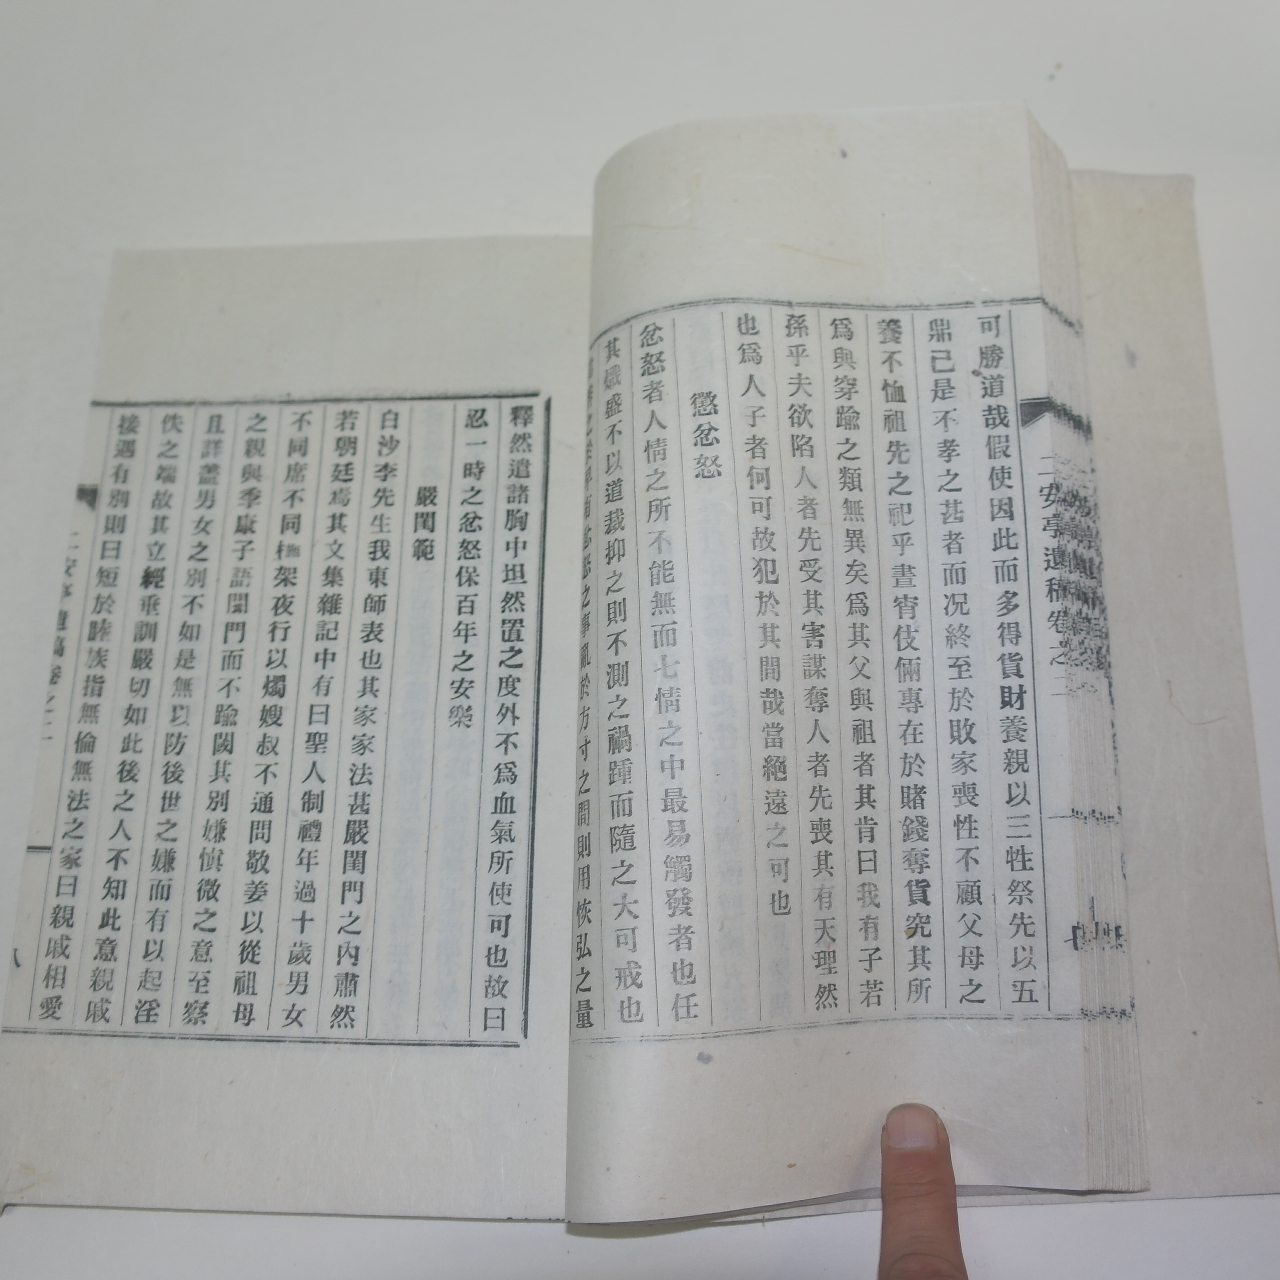 二安亭遺稿卷之二
七
可勝道哉假使因此而多得貨財養親以三牲祭先以五
鼎己是不孝之甚者而况終至於敗家喪性不顧父母之
養不恤祖先之祀乎晝宵伎倆專在於賭錢奪貨究其所
爲與穿踰之類無異矣爲其父與祖者其肯曰我有子若
孫乎夫欲陷人者先受其害謀奪人者先喪其有天理然
也爲人子者何可故犯於其間哉當絕遠之可也
懲忿怒
忿怒者人情之所不能無而七情之中最易觸發者也任
其熾盛不以道裁抑之則不測之禍踵而隨之大可戒也
忿怒之事亂於方寸之間則用恢弘之量
釋然遣諸胸中坦然置之度外不爲血氣所使可也故曰
忍一時之忿怒保百年之安樂
嚴閨範
白沙李先生我東師表也其家家法甚嚴閨門之內肅然
若朝廷焉其文集雜記中有曰聖人制禮年過十歲男女
不同席不同椸架夜行以燭嫂叔不通問敬姜以從祖母
之親與季康子語闈門而不踰閾其別嫌愼微之意至察
且詳蓋男女之別不如是無以防後世之嫌而有以起淫
佚之端故其立經垂訓嚴切如此後之人不知此意親戚
接遇有別則曰短於睦族指無倫無法之家曰親戚相愛
二安亭遺稿卷之二
八